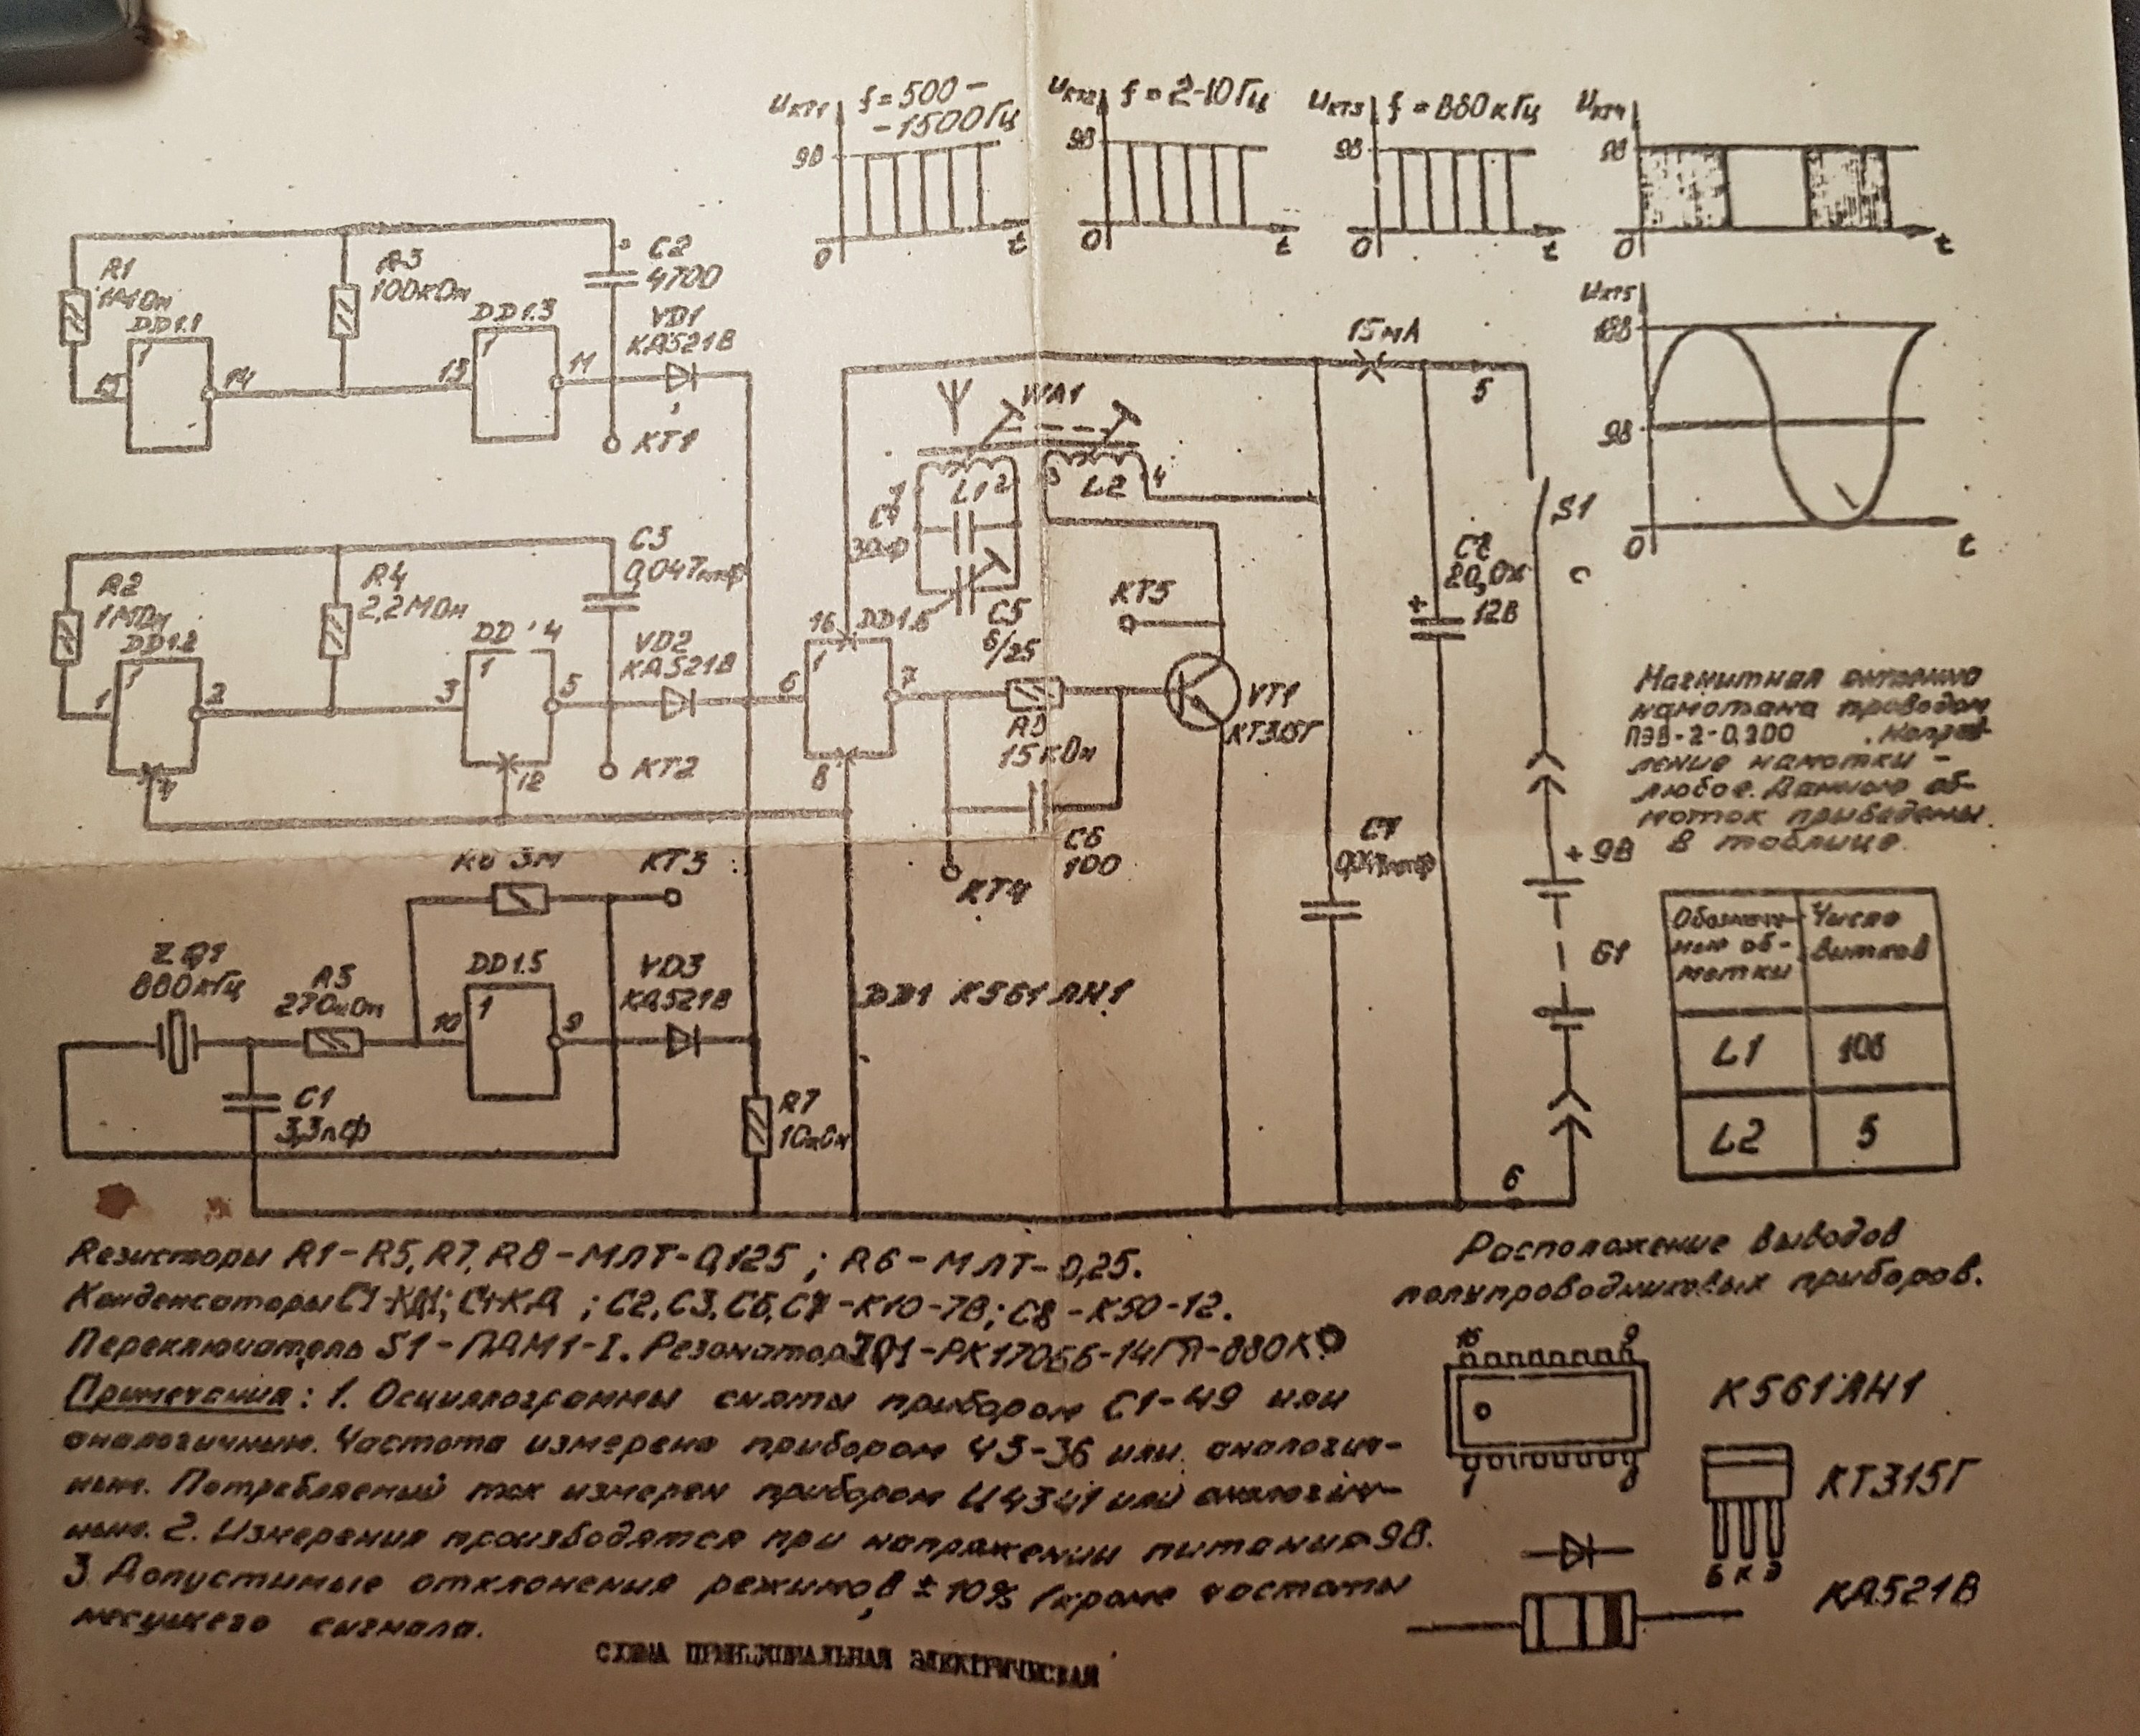 Uкт1 f=500-
-1500Гц
9В
0 t
Uкт2 f=2-10Гц
9В
0 t
Uкт3 f=880кГц
9В
0 t
Uкт4
9В
0 t
Uкт5
18В
9В
0 t
R1
1МОм
DD1.1
1
15 14
R3
100кОм
DD1.3
1
13 11
C2
4700
VD1
КД521В
КТ1
R2
1МОм
DD1.2
1
1 2
4
R4
2,2МОм
DD 4
1
3 5
12
C3
0,047мкф
VD2
КД521В
КТ2
WA1
1 L1 2
3 L2 4
30пФ
C5
8/25
16 DD1.6
1
6 7
8
15кОм
C6
100
КТ4
КТ5
VT1
КТ315Г
15мА
5
S1
C8
20,0х
+ 12В
C7
+ 9В
6
R6 3М
КТ3
ZQ1
880кГц
R5
270кОм
DD1.5
1
10 9
VD3
КД521В
C1
3,3пФ
R7
10кОм
DD1 К561ЛН1
Магнитная антенна
намотана проводом
ПЭВ-2-0,200 . Направ-
ление намотки -
любое. Данные об-
моток приведены
в таблице.
Обозначе- Число
ние об- витков
мотки
L1 108
L2 5
Резисторы R1-R5, R7, R8-МЛТ-0,125; R6-МЛТ-0,25.
Конденсаторы C1-КД1; C4-КД ; C2, C3, C6, C7-К10-7В; C8-К50-12.
Переключатель S1-ПДМ1-I. Резонатор ZQ1-РК170ББ-14ГП-880К
Примечания: 1. Осциллограммы сняты прибором С1-49 или
аналогичным. Частота измерена прибором Ч3-36 или аналогич-
ным. Потребляемый ток измерен прибором Ц4341 или аналогич-
ным. 2. Измерения производятся при напряжении питания 9В.
3. Допустимые отклонения режимов ±10% (кроме частоты
несущего сигнала.
СХЕМА ПРИНЦИПИАЛЬНАЯ ЭЛЕКТРИЧЕСКАЯ
Расположение выводов
полупроводниковых приборов.
16 9
1 8
К561ЛН1
КТ315Г
Б К Э
КД521В